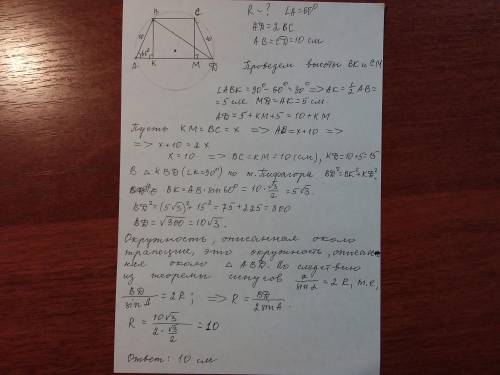 B C
R - ? ∠A = 60°
AD = 2BC
10 10
AB = CD = 10 см
A 60° K M D
Проведем высоты BK и CM
∠ABK = 90° - 60° = 30° => AK = 1/2 AB =
= 5 см. MD = AK = 5 см.
AD = 5 + KM + 5 = 10 + KM
Пусть KM = BC = x => AD = x + 10 =>
=> x + 10 = 2x
x = 10 => BC = KM = 10 (см), KD = 10 + 5 = 15
В △ KBD (∠K = 90°) по т. Пифагора BD² = BK² + KD².
BK = AB · sin 60° = 10 · √3/2 = 5√3.
BD² = (5√3)² + 15² = 75 + 225 = 300
BD = √300 = 10√3.
Окружность, описанная около
трапеции, это окружность, описан-
ная около △ ABD. По следствию
из теоремы синусов a/sin α = 2R, т.е.
BD/sin A = 2R; => R = BD/2 sin A.
R = 10√3/(2 · √3/2) = 10
Ответ: 10 см